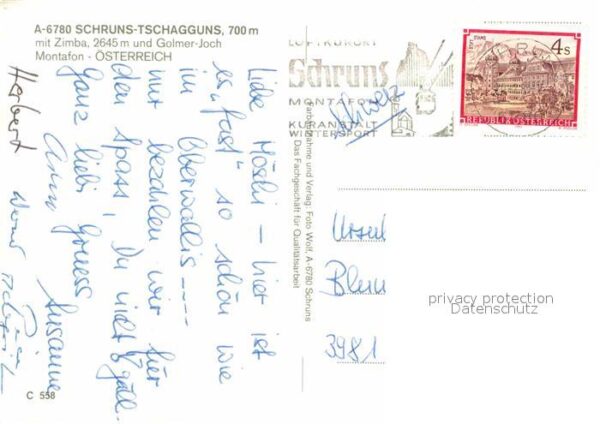 A-6780 SCHRUNS-TSCHAGGUNS, 700 m
mit Zimba, 2645 m und Golmer-Joch
Montafon - ÖSTERREICH
Liebe Möshi – hier ist
es „fast" so schön wie
im Oberwallis ----
nur bezahlen wir für
den Spass, Du nicht
Ganz liebi Gruess
Susanne
Herbert
C 558
Farbaufnahme und Verlag: Foto Wolf, A-6780 Schruns
Das Fachgeschäft für Qualitätsarbeit
LUFTKURORT
Schruns
MONTAFON
KURANSTALT
WINTERSPORT
Schweiz
4 S
STIFT STAMS
REPUBLIK ÖSTERREICH
3981
privacy protection
Datenschutz